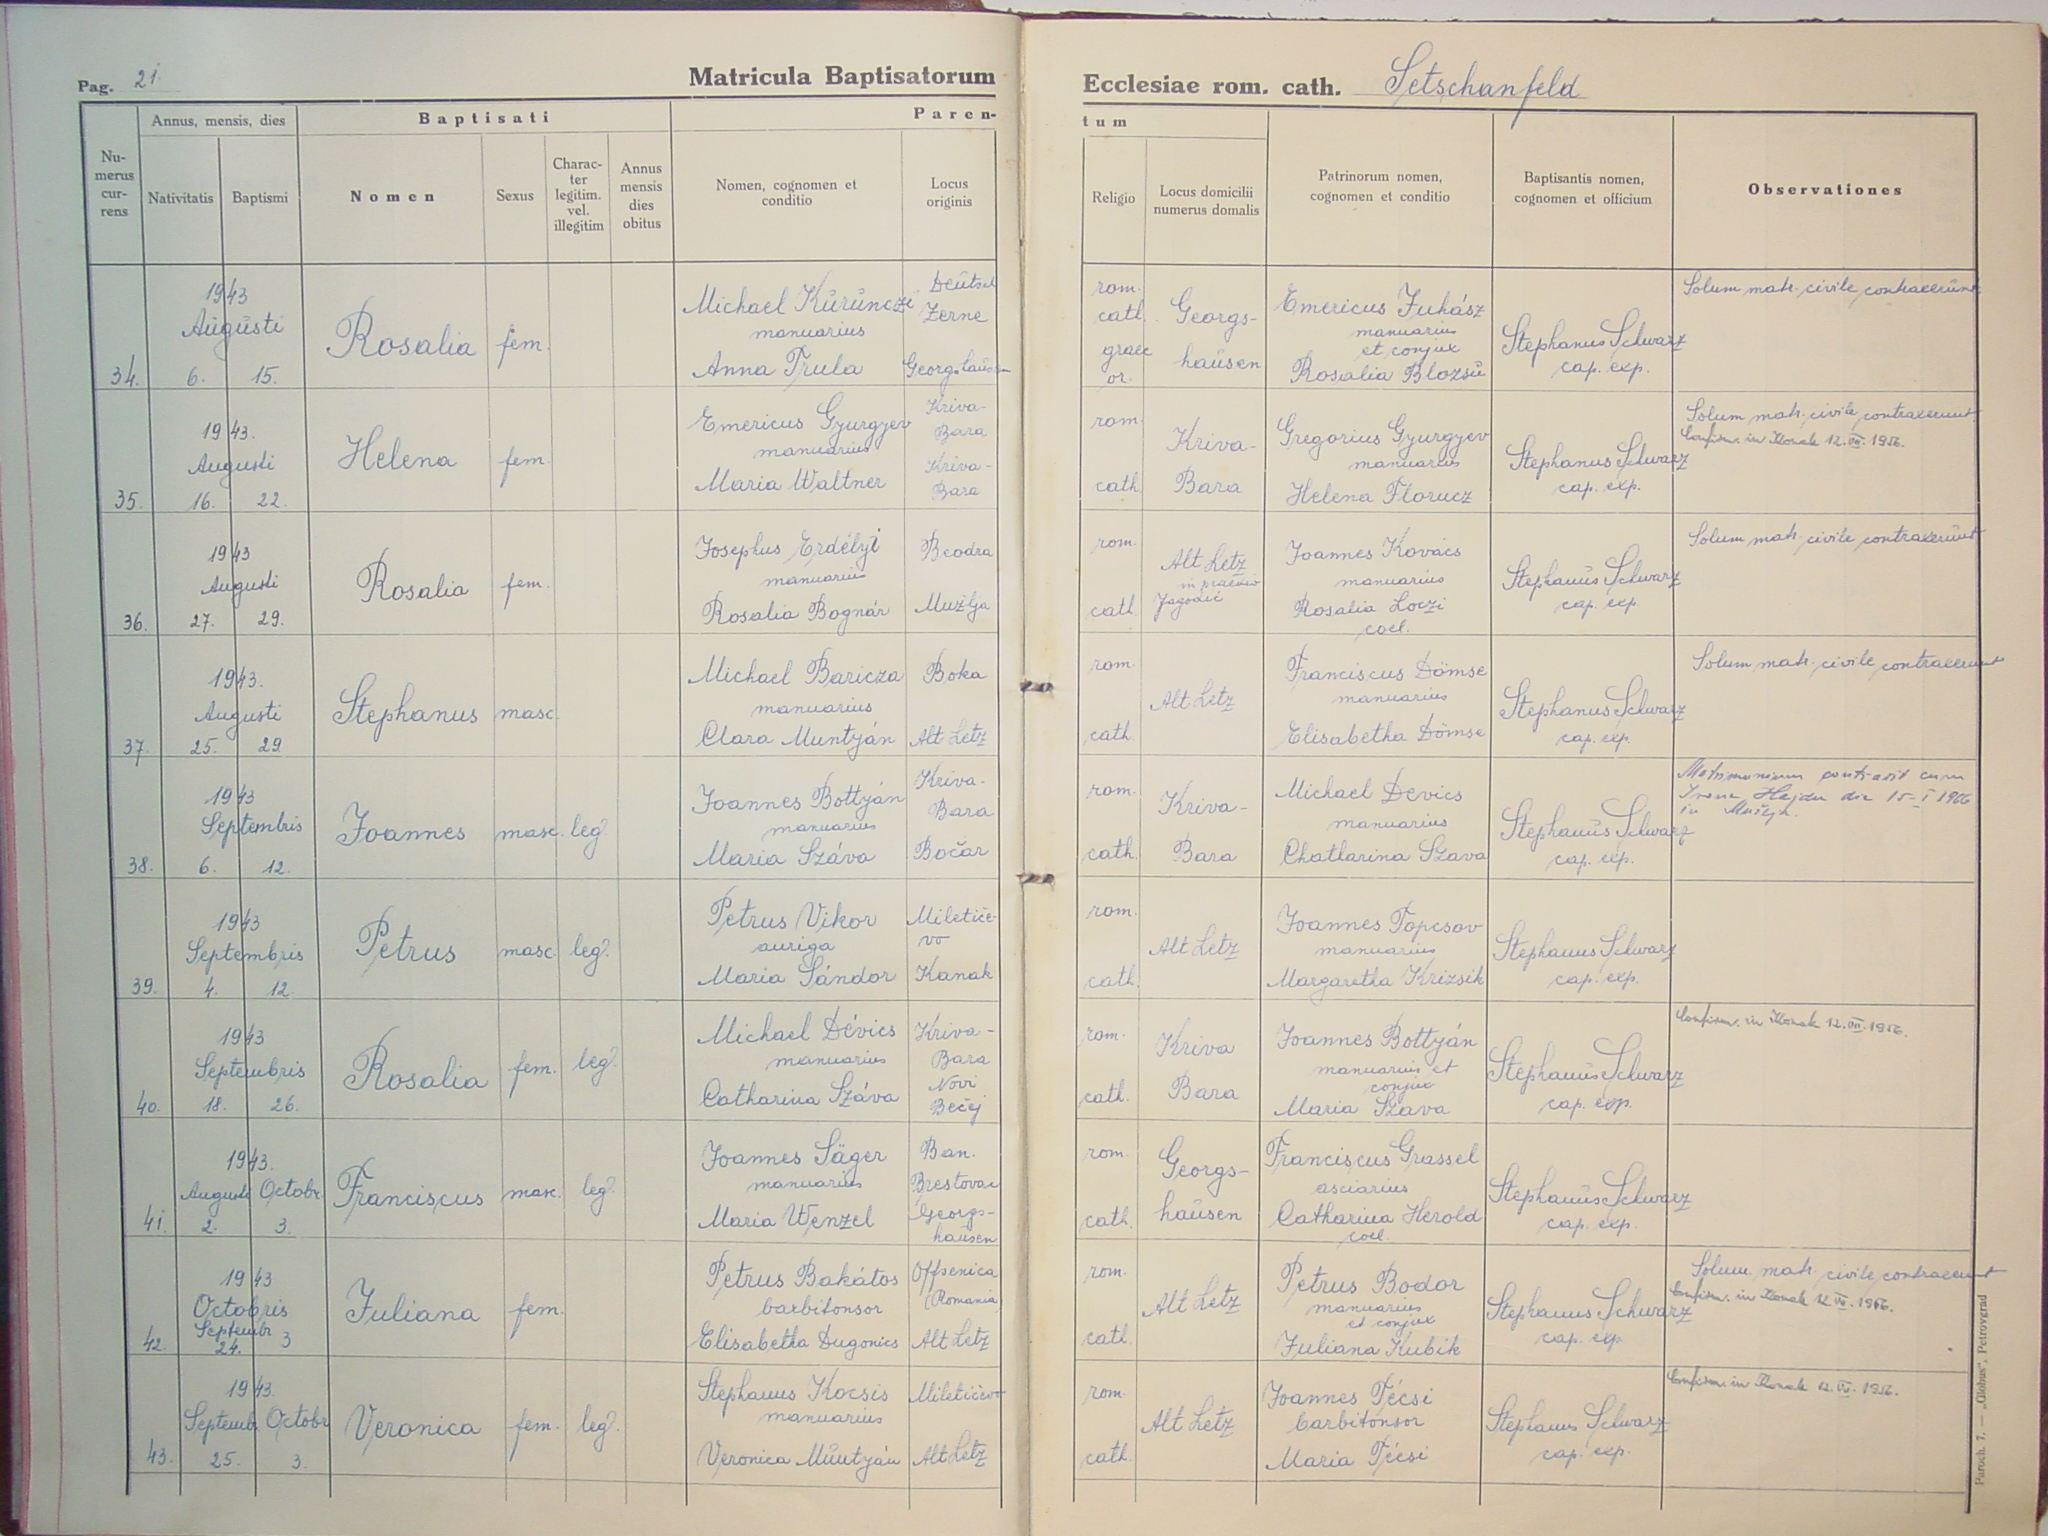 Pag. 21.
Matricula Baptisatorum
Ecclesiae rom. cath. Setschanfeld
Numerus currens
Annus, mensis, dies
Nativitatis
Baptismi
Baptisati
Nomen
Sexus
Charac-
ter
legitim.
vel.
illegitim
Annus
mensis
dies
obitus
Paren-
tum
Nomen, cognomen et
conditio
Locus
originis
Religio
Locus domicilii
numerus domalis
Patrinorum nomen,
cognomen et conditio
Baptisantis nomen,
cognomen et officium
Observationes
34.
1943
Augusti
6. 15.
Rosalia
fem.
Michael Kürünczi
manuarius
Anna Trula
Deutsch
Zerne
Georgshausen
rom.
cath.
graec
or.
Georgs-
hausen
Emericus Juhász
manuarius
et conjux
Rosalia Blozsu
Stephanus Schwarz
cap. exp.
Solum matr. civile contraxerunt
35.
1943.
Augusti
16. 22.
Helena
fem.
Emericus Gyurgyev
manuarius
Maria Waltner
Kriva-
Bara
Kriva-
Bara
rom.
cath.
Kriva-
Bara
Gregorius Gyurgyev
manuarius
Helena Florucz
Stephanus Schwarz
cap. exp.
Solum matr. civile contraxerunt
Confirm. in Konak 12.VII.1956.
36.
1943
Augusti
27. 29.
Rosalia
fem.
Josephus Erdélyi
manuarius
Rosalia Bognár
Beodra
Mužlja
rom.
cath.
Alt Letz
Jagodić
Joannes Kovács
manuarius
Rosalia Loczi
coel.
Stephanus Schwarz
cap. exp.
Solum matr. civile contraxerunt
37.
1943.
Augusti
25. 29
Stephanus
masc.
Michael Baricza
manuarius
Clara Muntyán
Boka
Alt Letz
rom.
cath.
Alt Letz
Franciscus Dömse
manuarius
Elisabetha Dömse
Stephanus Schwarz
cap. exp.
Solum matr. civile contraxerunt
38.
1943
Septembris
6. 12.
Joannes
masc.
leg.
Joannes Bottyán
manuarius
Maria Száva
Kriva-
Bara
Bočar
rom.
cath.
Kriva-
Bara
Michael Devics
manuarius
Chatharina Szava
Stephanus Schwarz
cap. exp.
Matrimonium contraxit cum
Irene Hajdu die 15-I 1966
in Mužlja.
39.
1943
Septembris
4. 12.
Petrus
masc.
leg.
Petrus Vikor
auriga
Maria Sándor
Miletiče-
vo
Kanak
rom.
cath.
Alt Letz
Joannes Topcsov
manuarius
Margaretha Krizsik
Stephanus Schwarz
cap. exp.
40.
1943
Septembris
18. 26.
Rosalia
fem.
leg.
Michael Dévics
manuarius
Catharina Száva
Kriva-
Bara
Novi
Bečej
rom.
cath.
Kriva
Bara
Joannes Bottyán
manuarius et
conjux
Maria Szava
Stephanus Schwarz
cap. exp.
Confirm. in Konak 12.VII.1956.
41.
1943.
Augusti Octobr.
2. 3.
Franciscus
masc.
leg.
Joannes Säger
manuarius
Maria Wenzel
Ban.
Brestovac
Georgs-
hausen
rom.
cath.
Georgs-
hausen
Franciscus Grassel
asciarius
Catharina Herold
coel.
Stephanus Schwarz
cap. exp.
42.
1943
Octobris
Septembr
24. 3
Juliana
fem.
Petrus Bakátos
barbitonsor
Elisabetha Dugonics
Offsenica
(Romania)
Alt Letz
rom.
cath.
Alt Letz
Petrus Bodor
manuarius
et conjux
Juliana Kubik
Stephanus Schwarz
cap. exp.
Solum matr. civile contraxerunt
Confirm. in Konak 12.VII.1956.
43.
1943.
Septemb. Octobr
25. 3.
Veronica
fem.
leg.
Stephanus Kocsis
manuarius
Veronica Muntyán
Miletičevo
Alt Letz
rom.
cath.
Alt Letz
Joannes Técsi
barbitonsor
Maria Técsi
Stephanus Schwarz
cap. exp.
Confirm. in Konak 12.VII.1956.
Paroch. 7. — „Globus", Petrovgrad